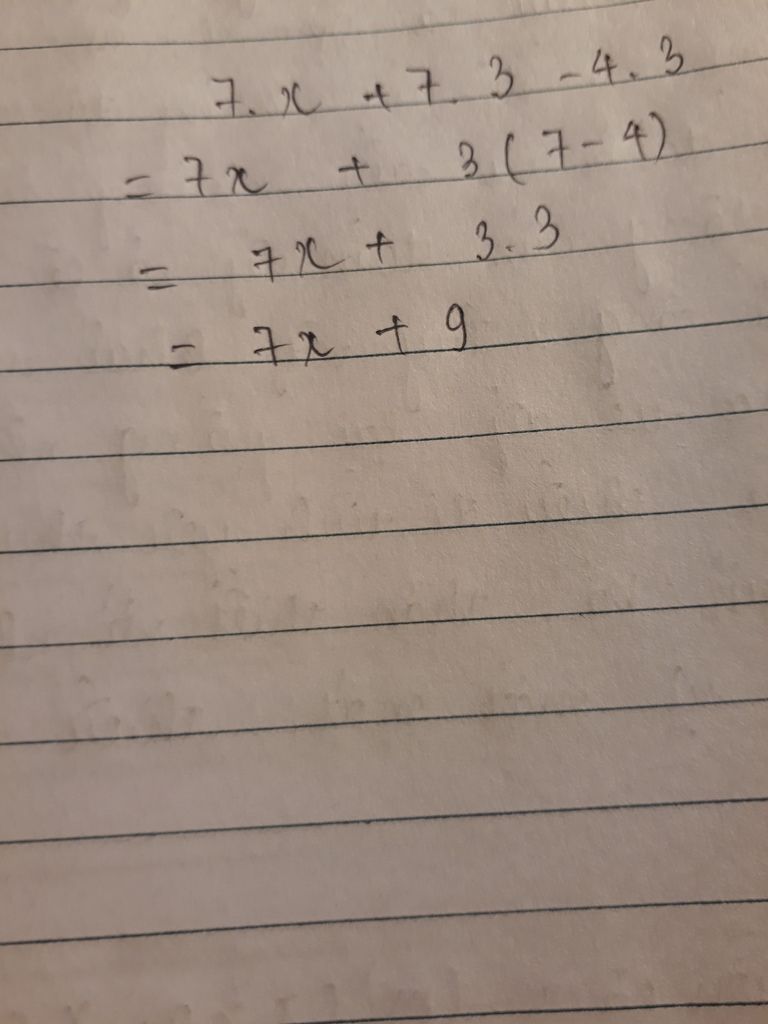 7.x + 7.3 - 4.3
= 7x + 3(7-4)
= 7x + 3.3
= 7x + 9